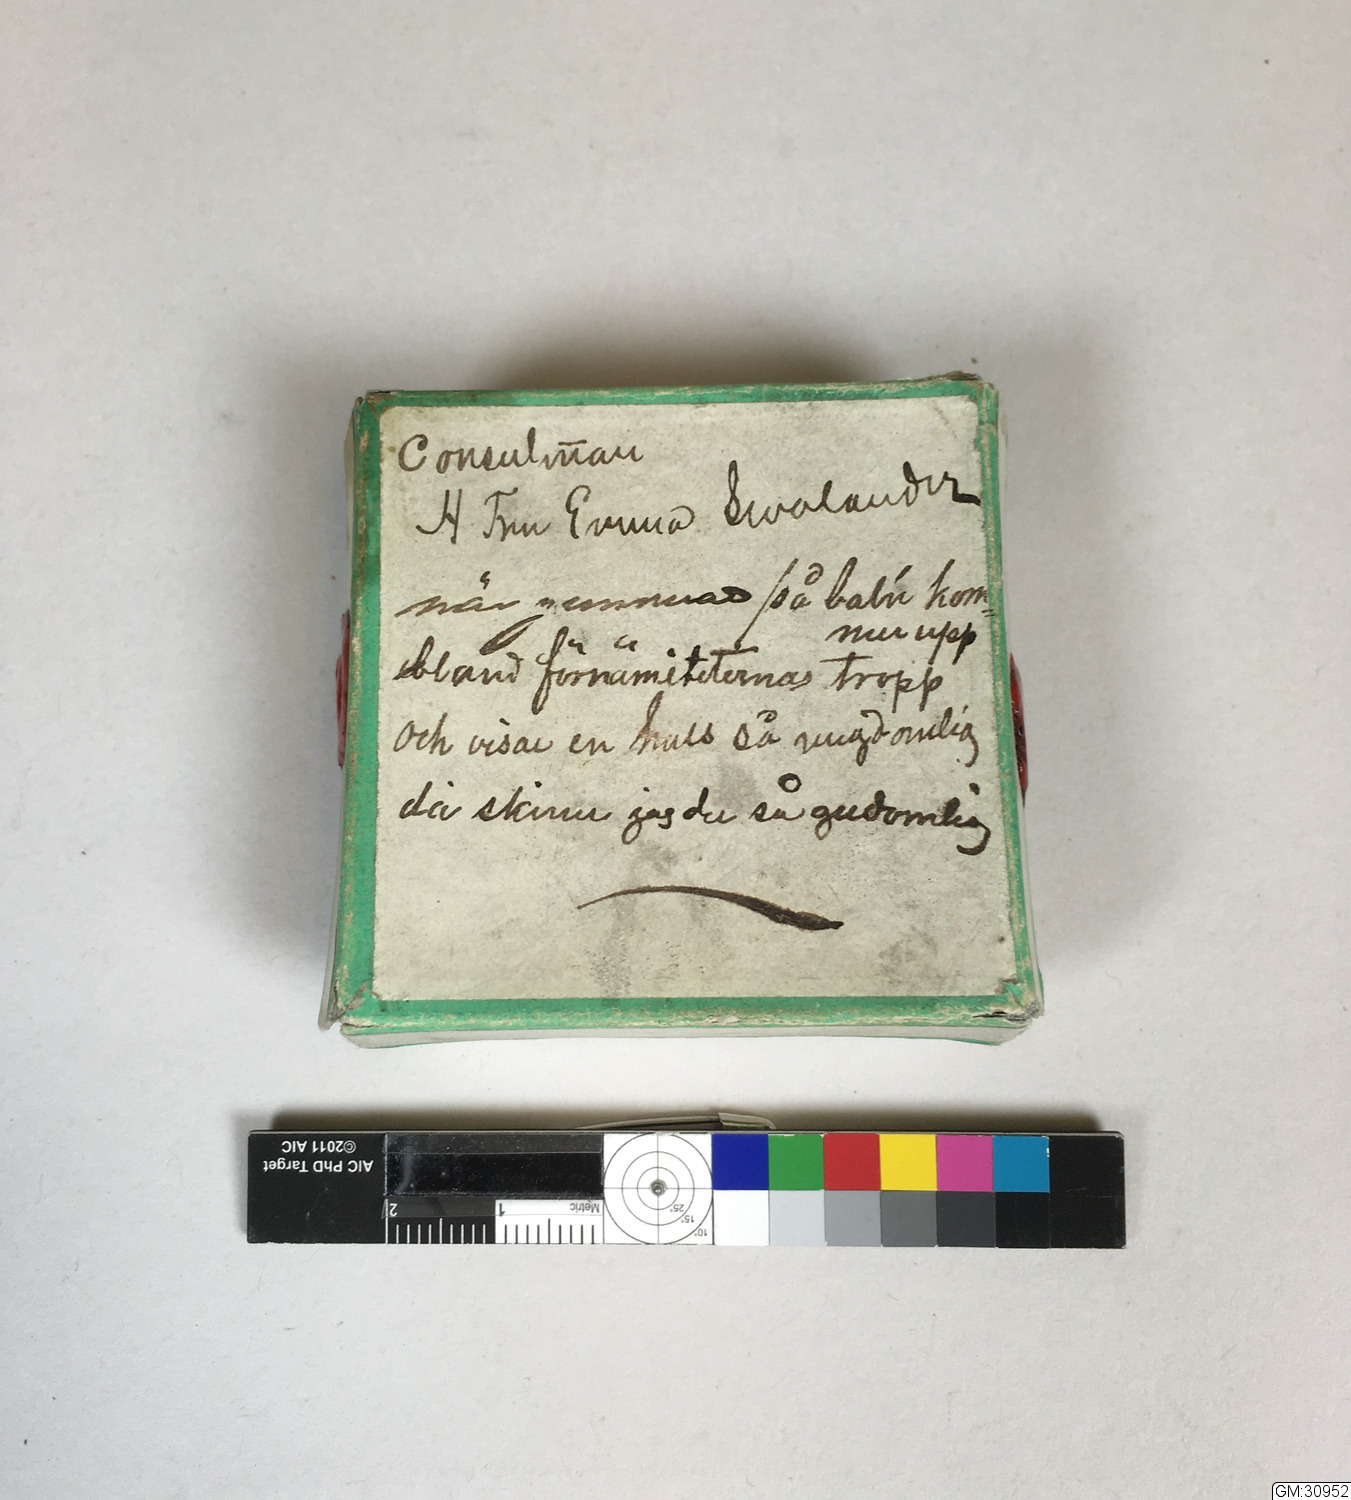 Consulinnan
H Fru Emma Swalander
när gummas på bal'n kom=
mer upp
ibland förnämiteternas tropp
och visar en hals så ungdomlig
då skiner jag du så gudomlig
AIC PhD Target
©2011 AIC
2
1
Metric
25°
15°
10°
GM:30952